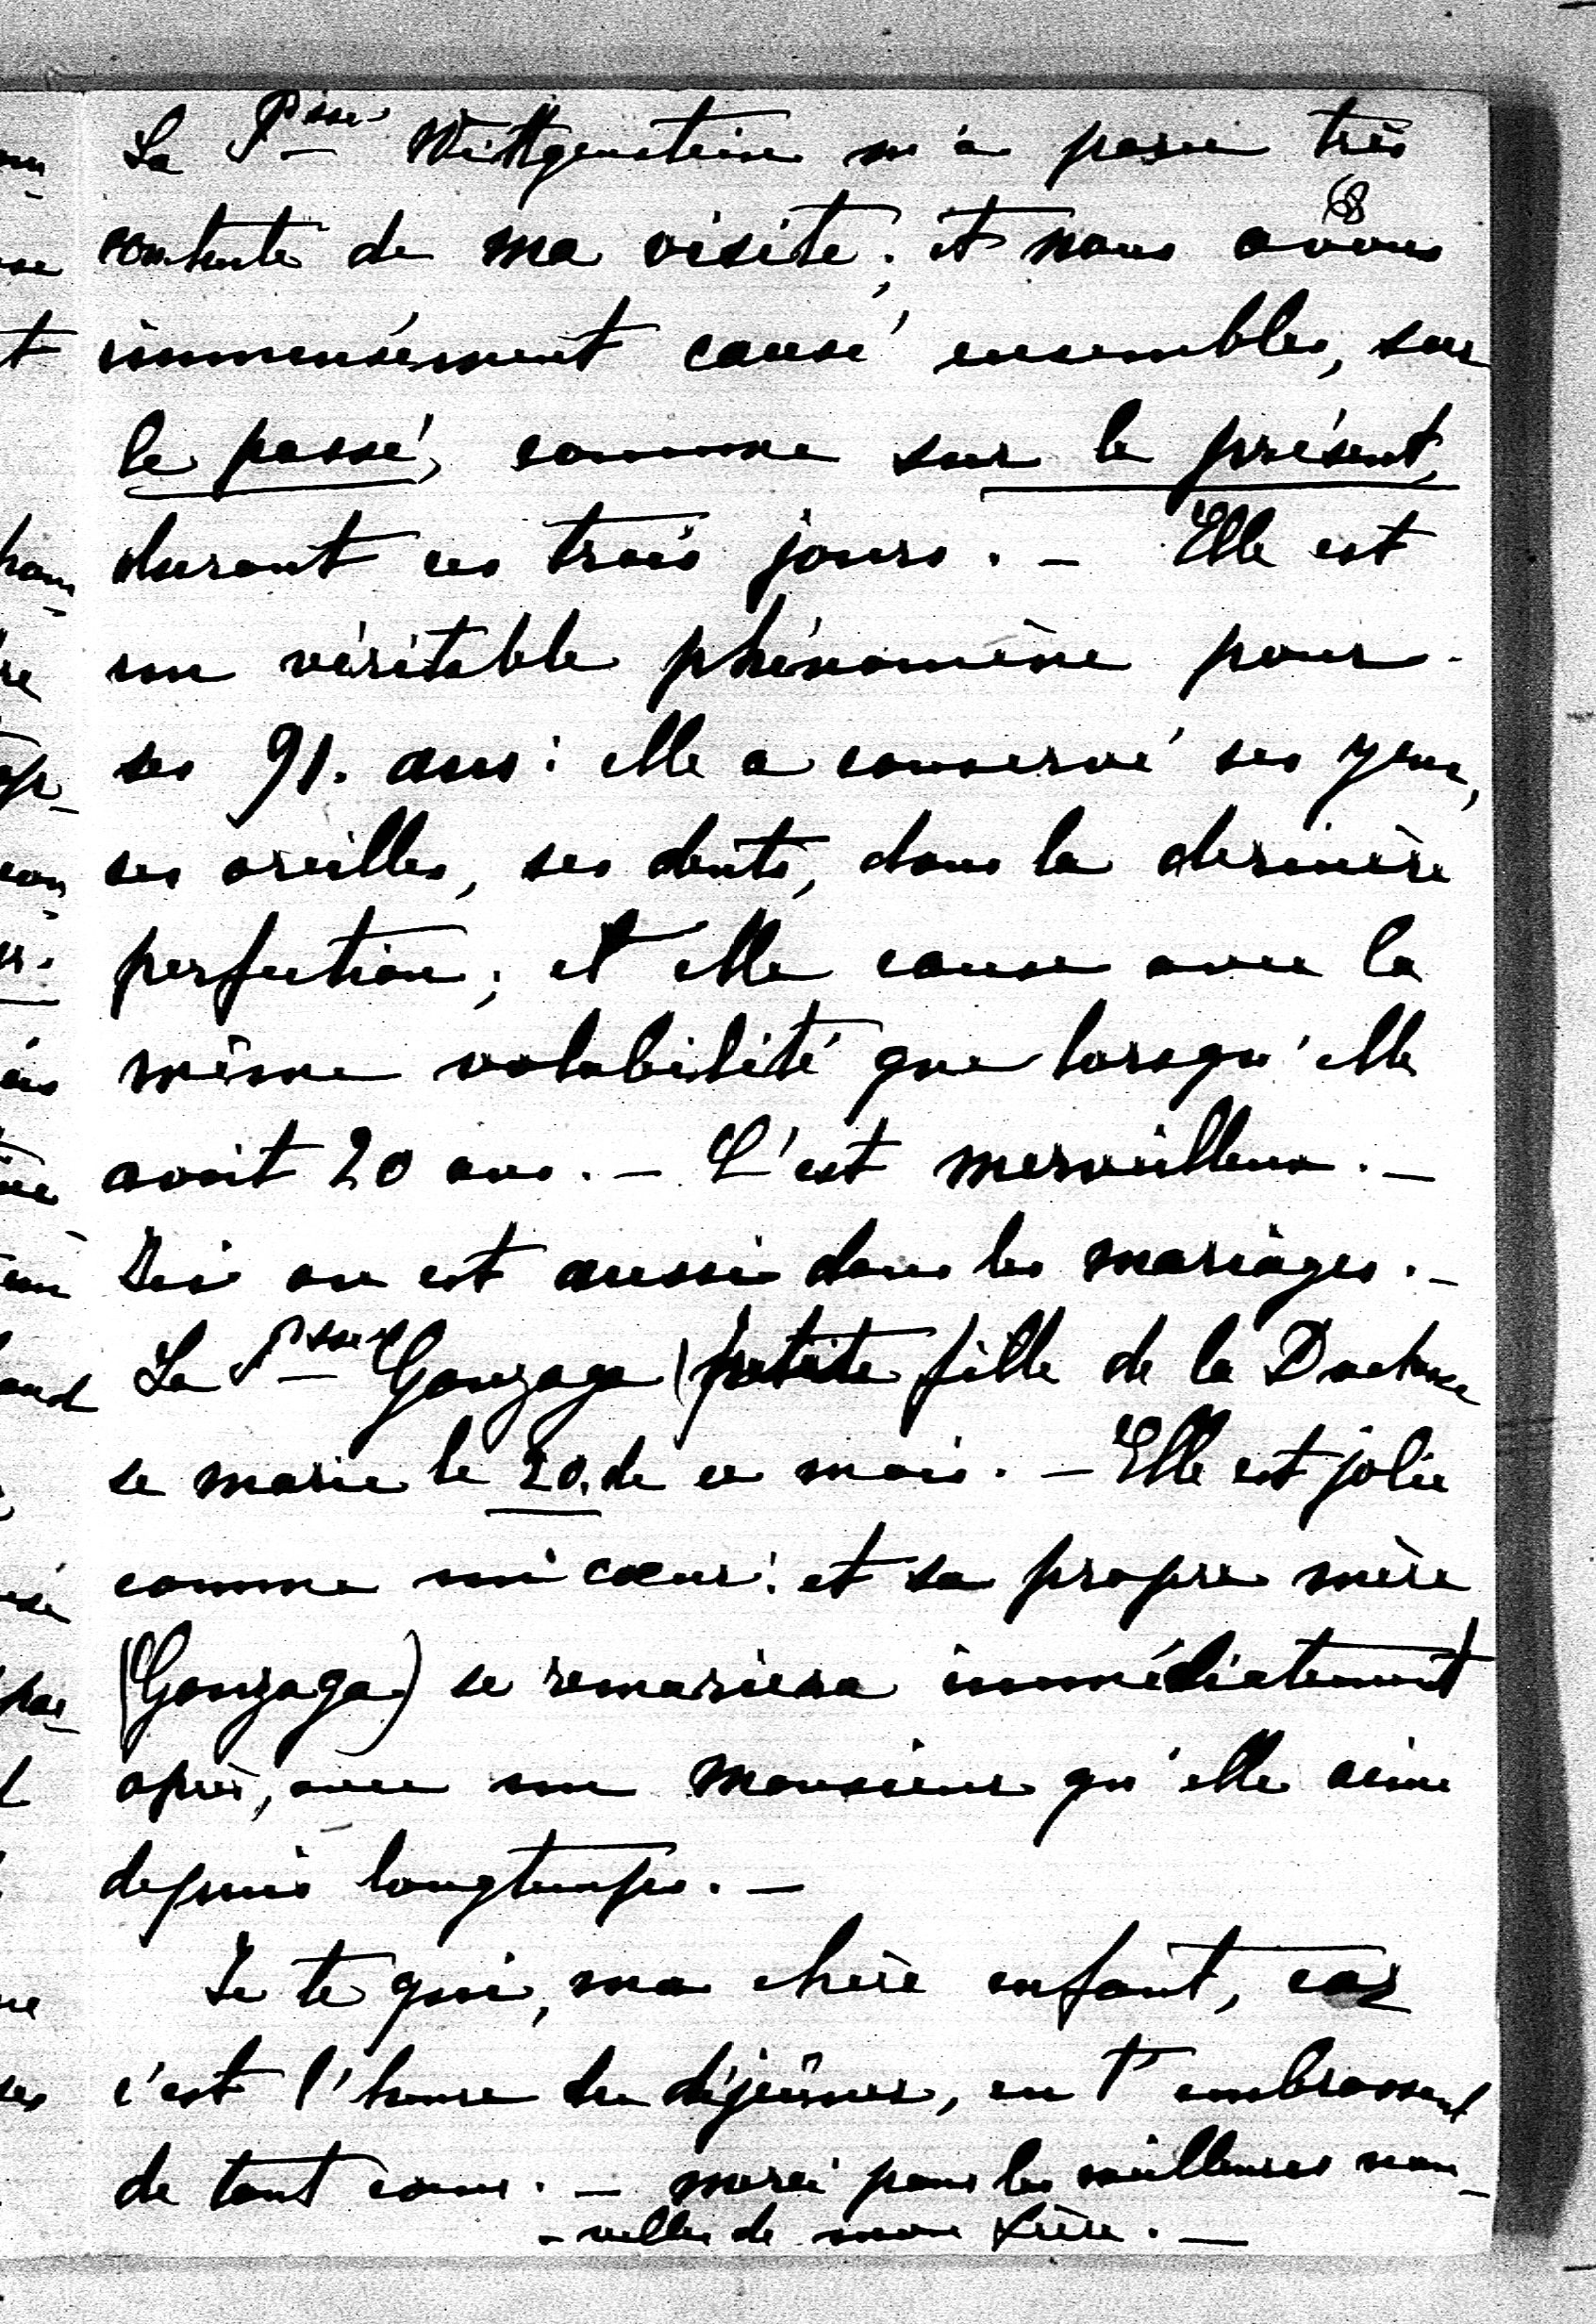 La Psse Wittgenstein m'a parue très
68
contente de ma visite; et nous avons
immensément causé ensembles, sur
le passé, comme sur le présent,
durant ces trois jours. - Elle est
un véritable phénomène pour
ses 91. ans: elle a conservé ses yeux,
ses oreilles, ses dents, dans la dernière
perfection; et elle cause avec la
même volubilité que lorsqu'elle
avait 20 ans. - C'est merveilleux. -
Ici on est aussi dans les mariages. -
La Psse Gonzaga (petite fille de la Duchesse
se marie le 20. de ce mois. - Elle est jolie
comme un cœur: et sa propre mère
(Gonzaga) se remariera immédiatement
après, avec un Monsieur qu'elle aime
depuis longtemps. -
Je te quitte, ma chère enfant, car
c'est l'heure du déjeûner, en t'embrassant
de tout cœur. - merci pour les meilleures nou-
-velles de mon frère. -